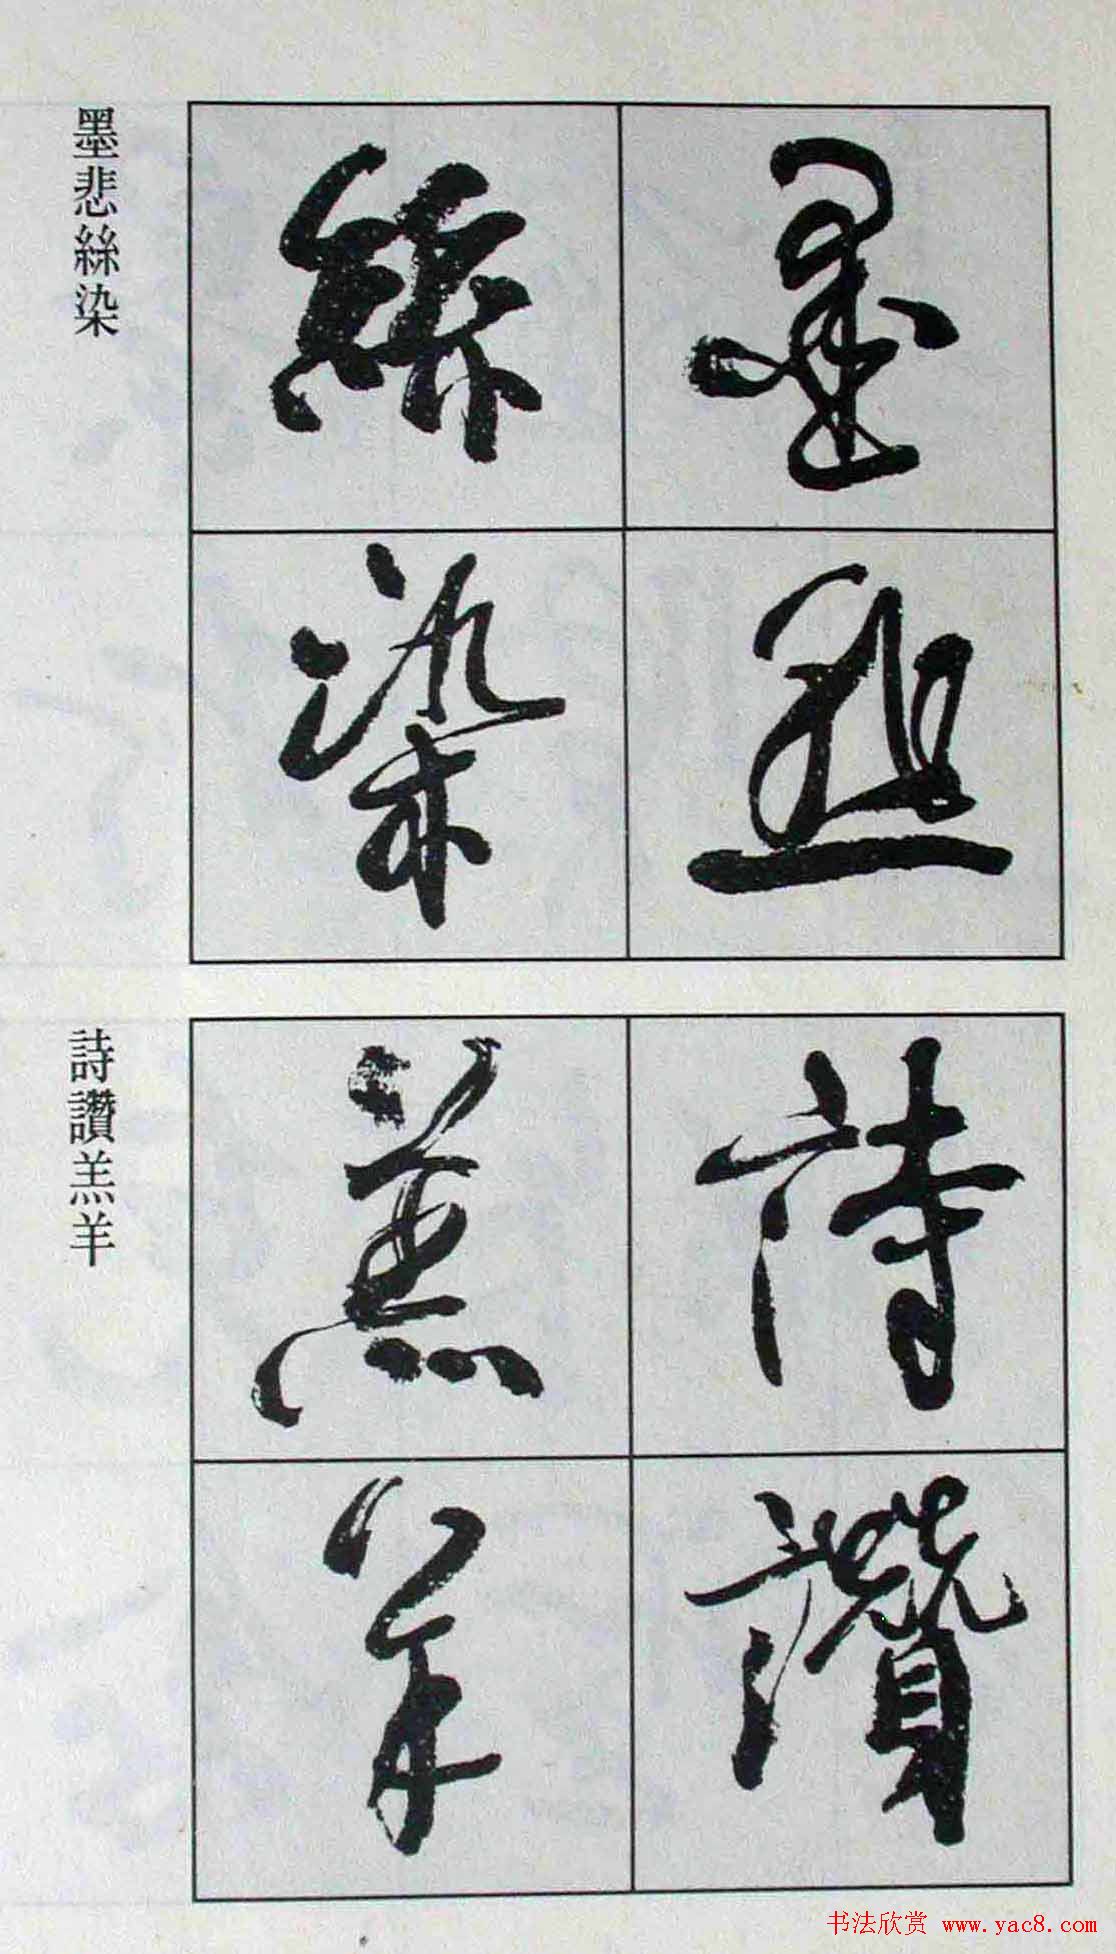 墨悲
絲染
墨悲絲染
詩讚
羔羊
詩讚羔羊
书法欣赏 www.yac8.com